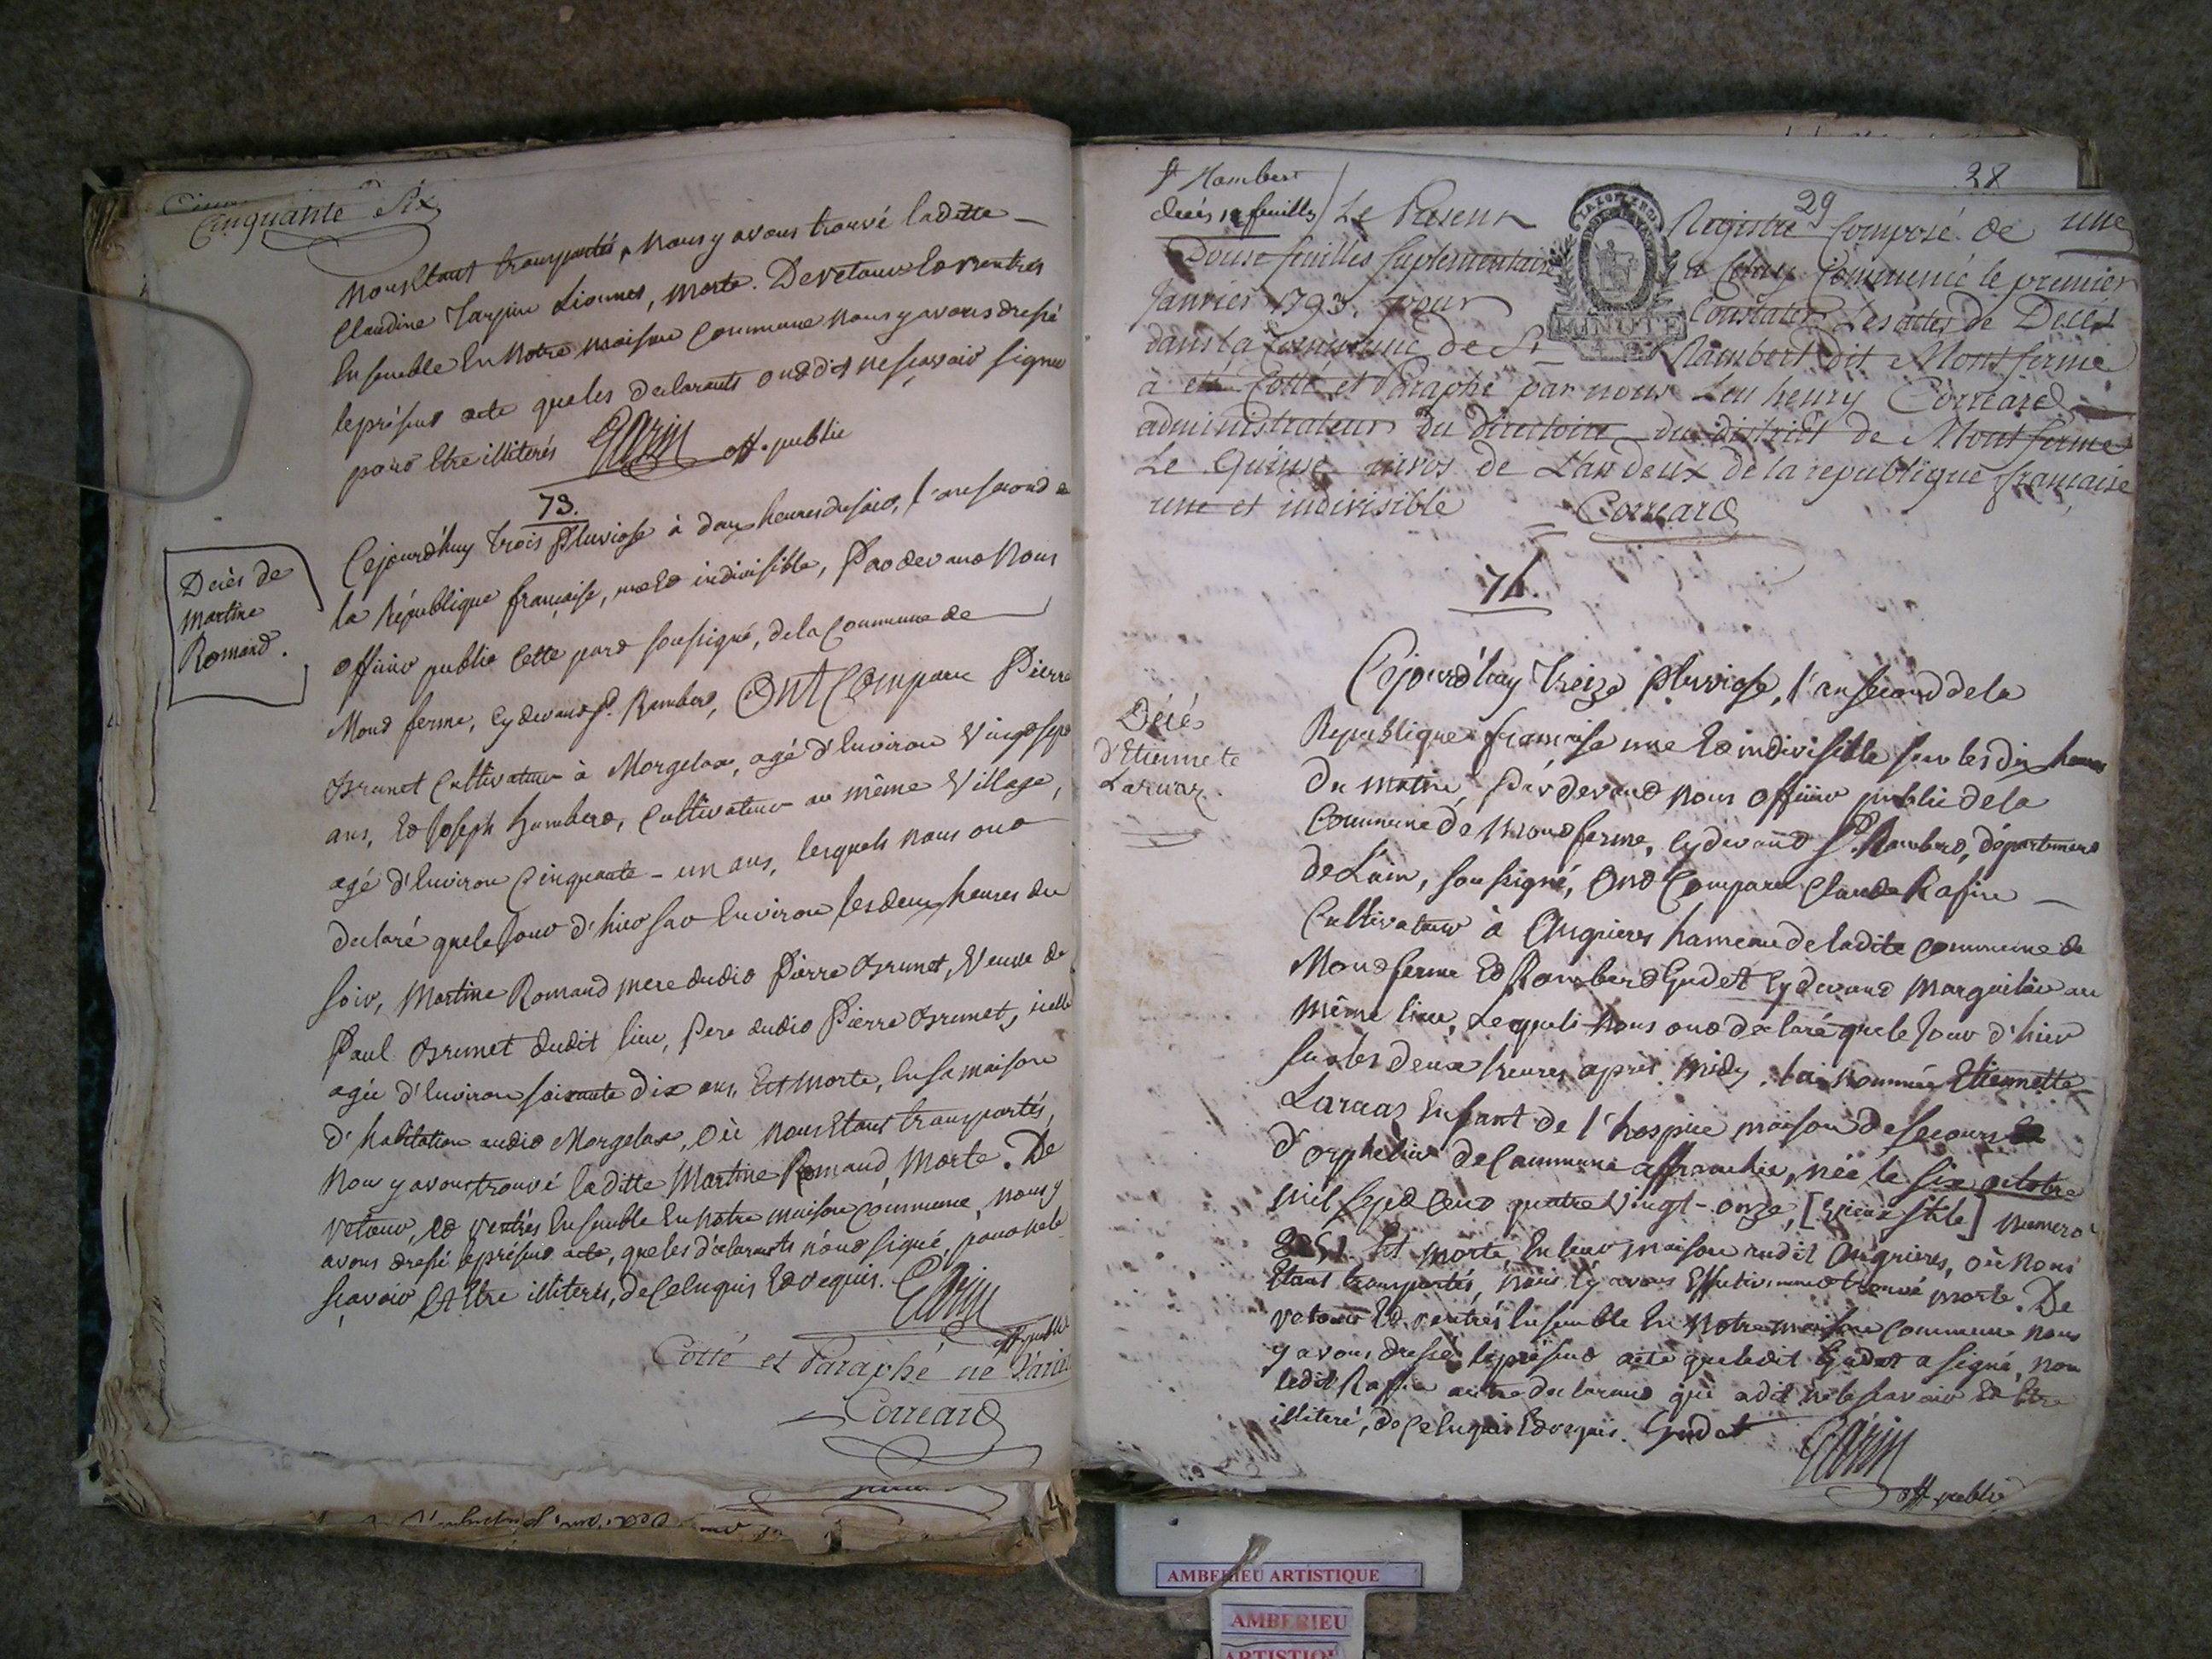 Cinquante Six
nous étant transportés, nous y avons trouvé laditte
Claudine morte. De retour et rentrés
Ensemble En Notre maison Commune nous y avons dressé
le présent acte que les déclarants ont dit ne sçavoir signer
pour Etre illiterés Garin off. public
73.
Décès de
Martine
Romand.
Cejourd'huy trois Pluviose à heures du soir, l'an second de
la République française, une Et indivisible, Pardevant Nous
officier public Cette part soussigné, de la Commune de
Mont ferme, Cy devant St. Rambert, Ont Comparu Pierre
Brunet Cultivateur à Morgelas, agé d'Environ Vingt sept
ans, Et Joseph humbert, Cultivateur au même Village,
agé d'Environ Cinquante - un ans, lesquels nous ont
declaré que le Jour d'hier sur Environ les deux heures du
soir, Martine Romand mere dudit Pierre Brunet, Veuve de
Paul Brunet dudit lieu, pere dudit Pierre Brunet, icelle
agée d'Environ soixante dix ans, Est Morte, En sa maison
d'habitation audit Morgelas, Où nous Etant transportés,
Nous y avons trouvé laditte Martine Romand, Morte. De
retour, et rentrés Ensemble En Notre maison Commune, nous y
avons dressé le présent acte, que les déclarants n'ont signé, pour ne le
sçavoir Et Etre illiterés, de Ce Enquis Et requis. Garin
off. public
Cotté et Paraphé ne varie
Correard
28
29
St Rambert
décès 12 feuilles
Le Present Registre Composé de une
Douse feuilles suplementaires a Celuy Commencé le premier
Janvier 1793. pour Constater Les actes de Décès
dans la Commune de St Rambert dit Montferme
MINUTE
à eté Cotté et Paraphé par nous Leu henry Correard
administrateur du directoire du district de Montferme
Le Quinse nivos de L'an deux de la republique française
une et indivisible Correard
74.
Décès
d'Etiennete
Larnaz
Cejourd'huy Treize Pluviose, l'an second de la
Republique française une Et indivisible sur les dix heures
du matin, Par devant nous officier public de la
Commune de Mont ferme, Cy devant St. Rambert, département
de L'ain, soussigné, Ont Comparu Claude Rafin
Cultivateur à Angrieres hameau de ladite Commune de
Mont ferme Et Rambert Gudet Cy devant Marguilier au
même lieu, Lesquels Nous ont declaré que le Jour d'hier
sur les deux heures après midy, la nommée Etiennette
Larnas Enfant de l'hospice maison de secours
d'orphelins de Commune affranchie, née le six octobre
mil sept Cent quatre vingt-onze, [Vieux stile] numero
Est Morte, En leur maison audit Angrieres, où Nous
Etant transportés, nous l'y avons Effectivement trouvé morte. De
retour Et rentrés Ensemble En Notre maison Commune nous
y avons dressé le présent acte que ledit Gudet a signé, non
ledit Raffin autre declarant qui a dit ne le sçavoir Et Etre
illiteré, de Ce Enquis Et requis. Gudet
Garin
off. public
AMBERIEU ARTISTIQUE
AMBERIEU
ARTISTIQUE